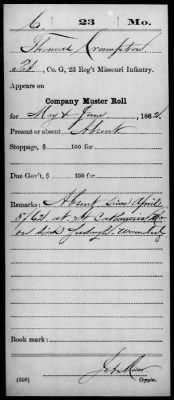 C | 23 | Mo.
Thomas Crumpton
Pvt, Co. G, 23 Reg't Missouri Infantry.
Appears on
Company Muster Roll
for May & June, 1862.
Present or absent Absent
Stoppage, $ 100 for
Due Gov't, $ 100 for
Remarks: Absent since April
8/62 at St
on sick furlough
Book mark:
(358) Copyist.